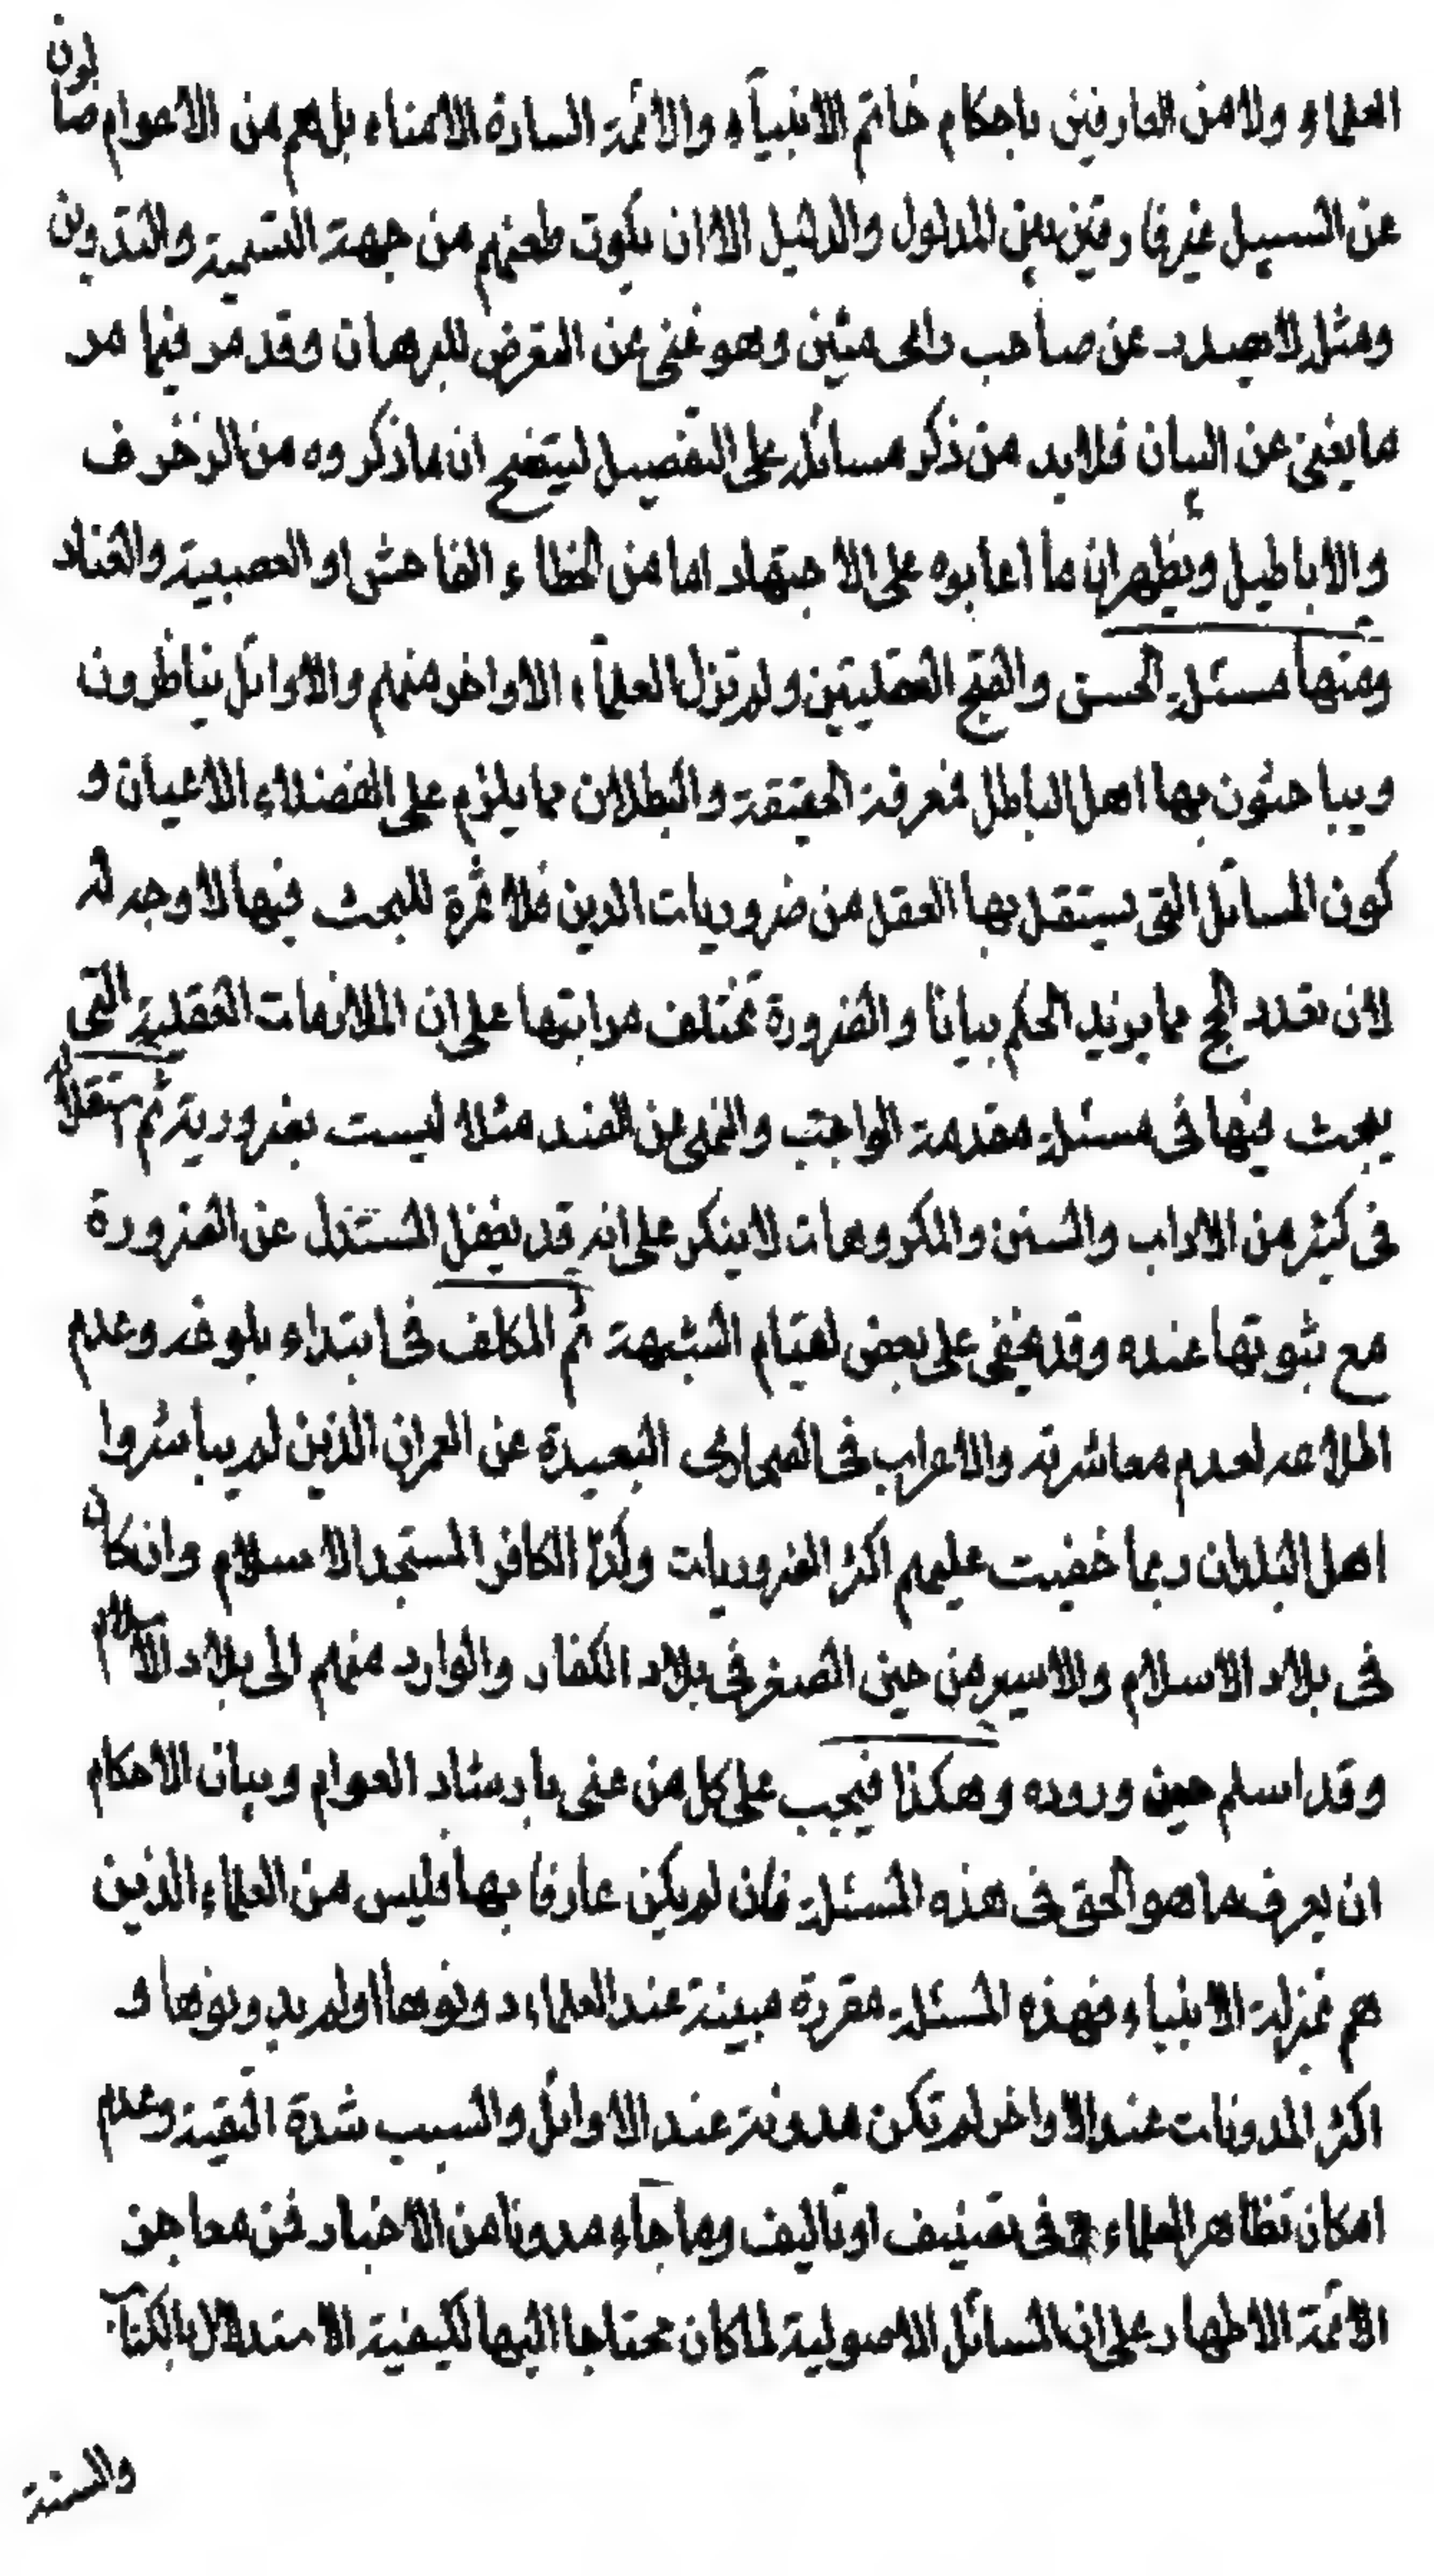 العلماء ولا من العارفين باحكام خاتم الانبيآء والائمة السادة الامناء بل هم من الاعوام ضالون
عن السبيل غير فارقين بين المدلول والدليل الا ان يكون طعنهم من جهة التسمية والتدوين
ومثله لا يصدر عن صاحب رأى متين وهو غنى عن التعرض للبرهان وقد مر فيما مر
ما يغنى عن البيان فلا بد من ذكر مسائله على التفصيل ليتضح ان ما ذكروه من الزخرف
والاباطيل ويظهر ان ما اعابوه على الاجتهاد اما من الخطاء الفاحش او العصبية والعناد
ومنها مسئلة الحسن والقبح العقليين ولم تزل العلمآء الاواخر منهم والاوائل يناظرون
ويباحثون بها اهل الباطل فمعرفة الحقيقة والبطلان مما يلزم على الفضلاء الاعيان و
كون المسائل التى يستقل بها العقل من ضروريات الدين فلا ثمرة للبحث فيها لا وجه له
لان تعدد الحجج مما يزيد الحكم بيانا والضرورة تختلف مراتبها على ان الملازمات العقلية التى
يبحث فيها فى مسئلة مقدمة الواجب والنهى عن الضد مثلا ليست بضرورية ثم استقلاله
فى كثير من الاداب والسنن والمكروهات لا ينكر على انه قد يغفل المستدل عن الضرورة
مع ثبوتها عنده وقد يخفى على بعض لقيام الشبهة ثم المكلف فى ابتداء بلوغه وعدم
اطلاعه لعدم معاشرته والاعراب فى الصحارى البعيدة عن العمران الذين لم يباشروا
اهل البلدان ربما خفيت عليهم اكثر الضروريات وكذا الكافر المستجد الاسلام وان كان
فى بلاد الاسلام والاسير من حين الصغر فى بلاد الكفار والوارد منهم الى بلاد الاسلام
وقد اسلم حين وروده وهكذا فيجب على كل من عنى بارشاد العوام وبيان الاحكام
ان يعرف ما هو الحق فى هذه المسئلة فان لم يكن عارفا بها فليس من العلماء الذين
هم بمنزلة الانبياء فهذه المسئلة مقررة مبينة عند العلماء دونوها او لم يدونوها و
اكثر المدونات عند الاواخر لم تكن مدونة عند الاوائل والسبب شدة التقية وعدم
امكان تظاهر العلماء فى تصنيف او تاليف وما جآء مدونا من الاخبار فمن معاجز
الائمة الاطهار على ان المسائل الاصولية لما كان محتاجا اليها لكيفية الاستدلال بالكتاب
والسنة